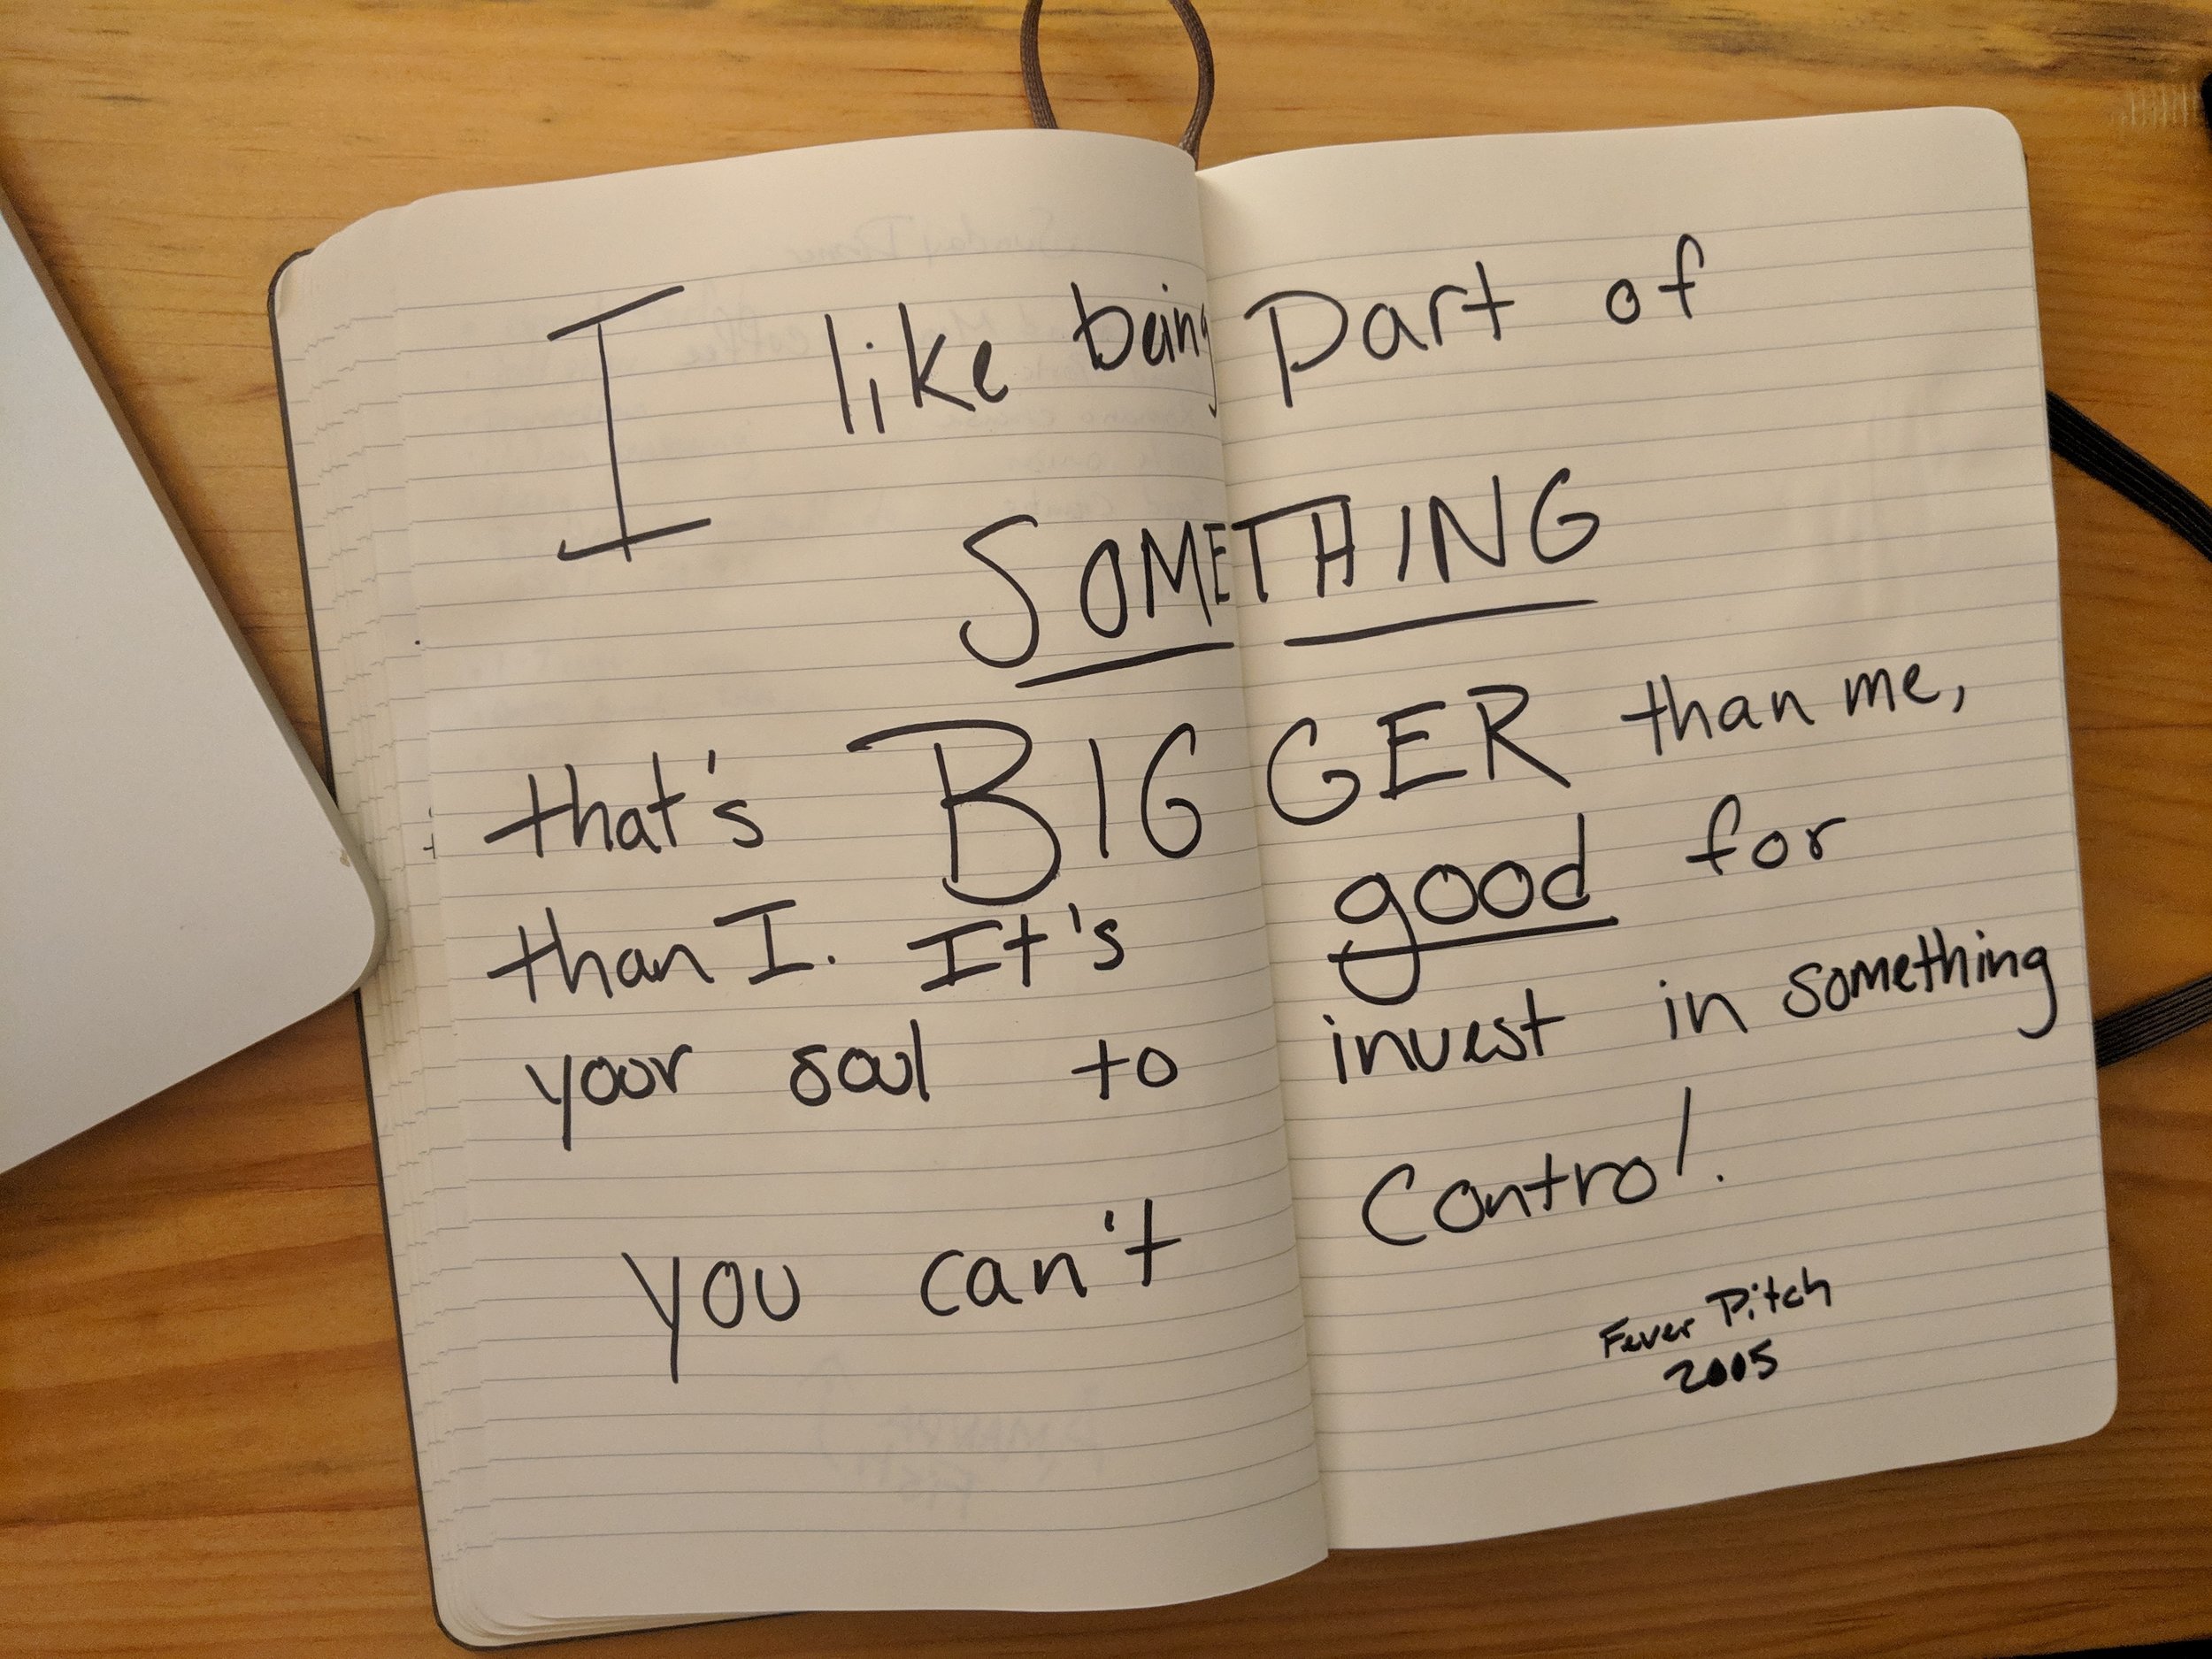 I like being part of
SOMETHING
that's BIGGER than me,
than I. It's good for
your soul to invest in something
you can't control.
Fever Pitch
2005
Sunday